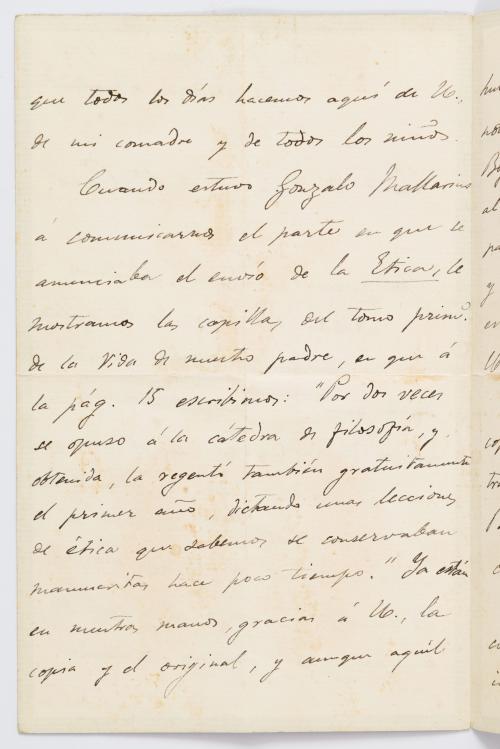 que todos los días hacemos aquí de U.,
de mi comadre y de todos los niños.
Cuando estuvo Gonzalo Mallarino
á comunicarnos el parte en que se
anunciaba el envío de la Etica, le
mostramos las capillas del tomo prim.º
de la Vida de nuestro padre, en que á
la pág. 15 escribimos: "Por dos veces
se opuso á la cátedra de filosofía, y,
obtenida, la regentó también gratuitamente
el primer año, dictando unas lecciones
de ética que sabemos se conservaban
manuscritas hace poco tiempo." Ya están
en nuestras manos, gracias á U., la
copia y el original, y aunque aquél